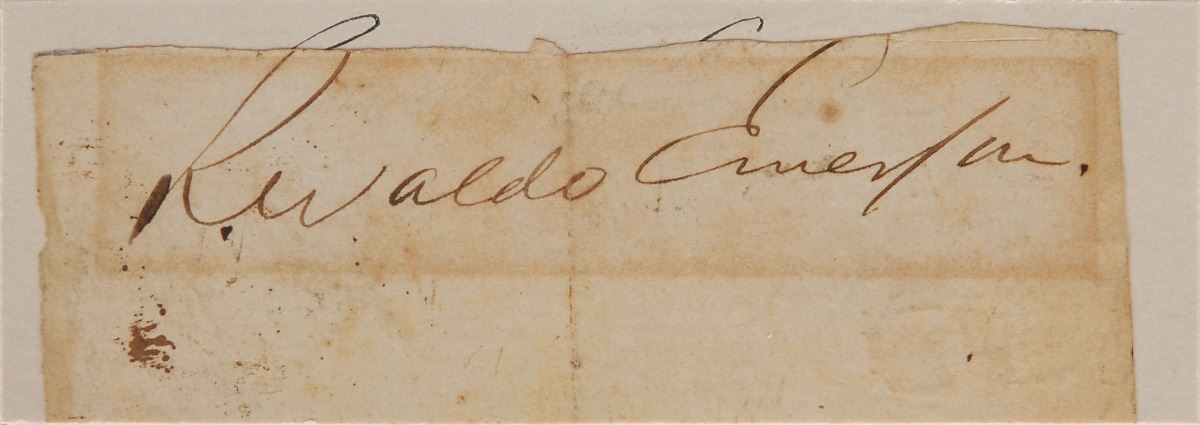 R. Waldo Emerson.